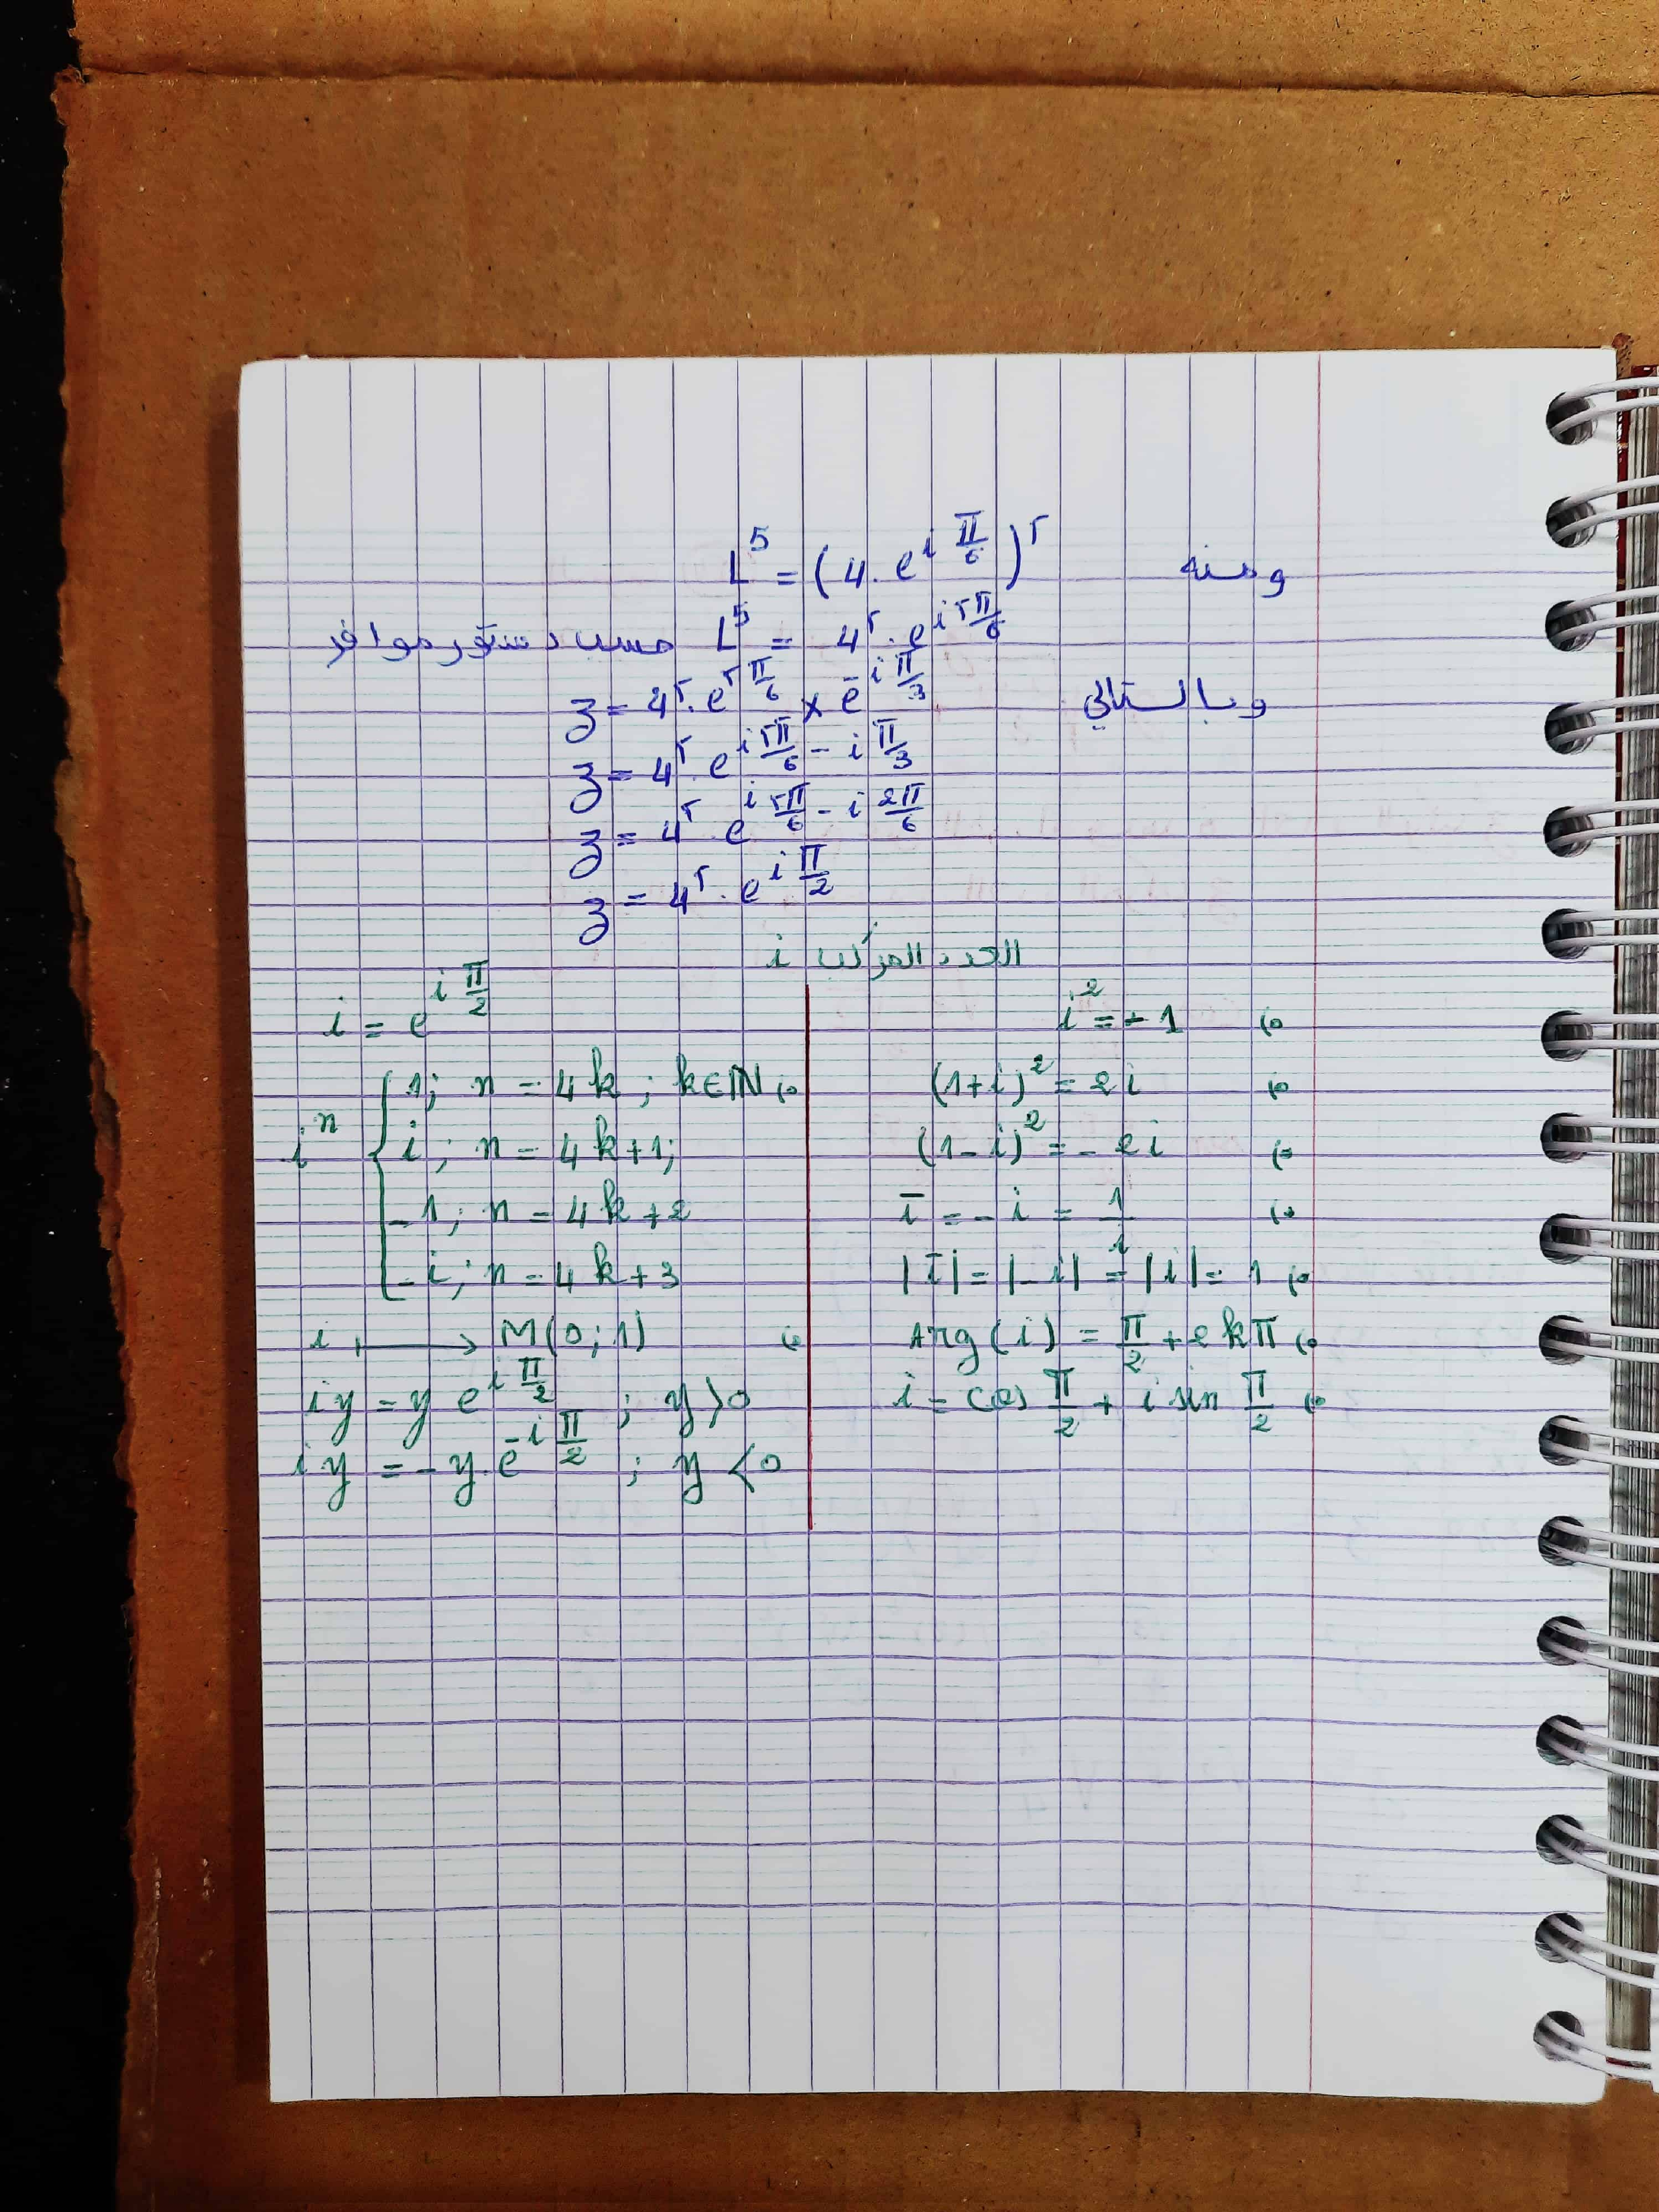 ومنه L^5 = (4. e^{i π/6})^5
L^5 = 4^5. e^{i 5π/6} حسب دستور موافر
وبالتالي z = 4^5. e^{5 π/6} × e^{-i π/3}
z = 4^5. e^{i 5π/6 - i π/3}
z = 4^5. e^{i 5π/6 - i 2π/6}
z = 4^5. e^{i π/2}
العدد المركب i
i² = -1
(1+i)² = 2i
(1-i)² = -2i
i̅ = -i = 1/i
|i̅| = |-i| = |i| = 1
Arg(i) = π/2 + 2kπ
i = cos π/2 + i sin π/2
i = e^{i π/2}
i^n { 1; n = 4k; k∈ℕ
i; n = 4k+1;
-1; n = 4k+2
-i; n = 4k+3
i ⟼ M(0;1)
iy = y e^{i π/2} ; y>0
iy = -y. e^{-i π/2} ; y<0